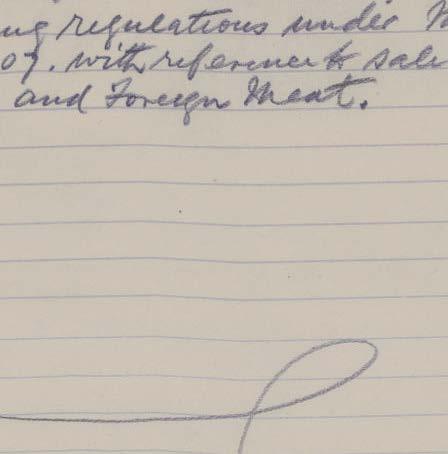 ng regulations under
07. with reference to sale
and Foreign Meat.